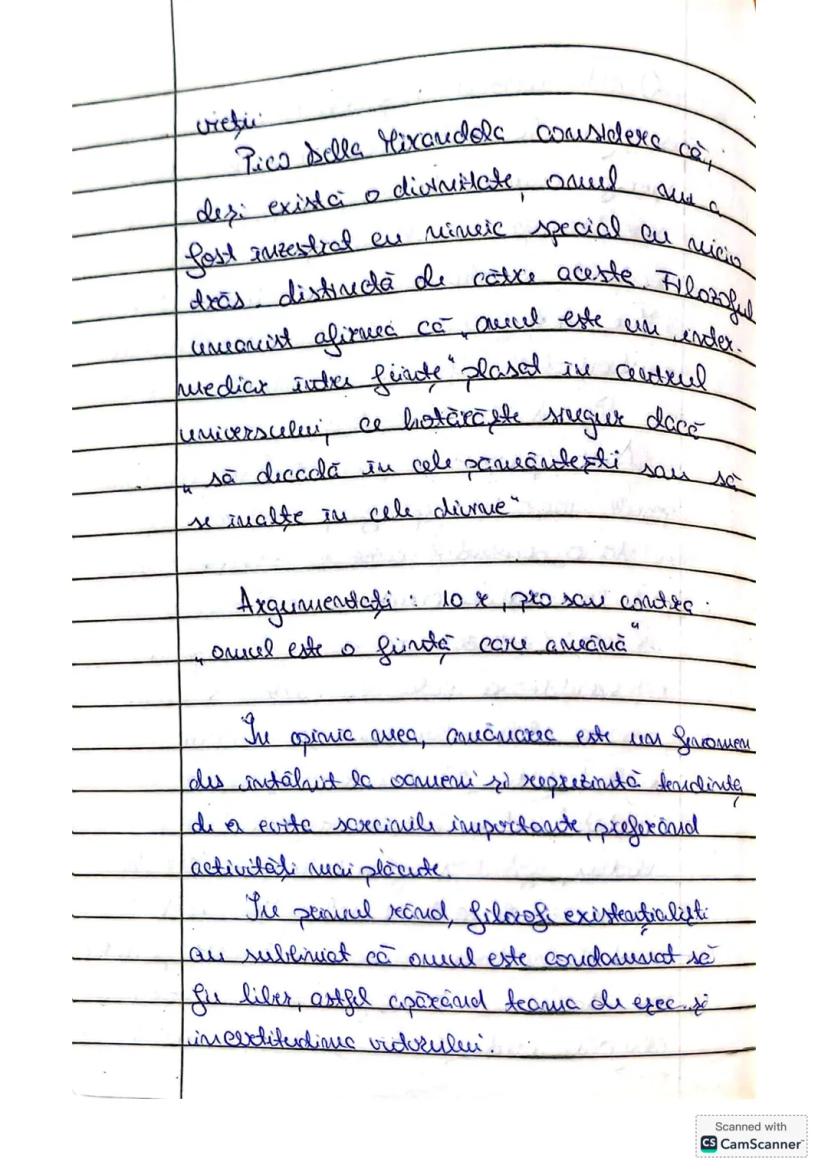 vieții.
Pico Della Mirandola considera că,
deși există o divinitate, omul nu a
fost inzestrat cu nimeic special cu nicio
trăs. distinctă de către aceste Filozoful
umanist afirmă că „omul este un inter-
mediar între ființe“ plasat în centrul
universului, ce hotărăște singur dacă
„să decadă în cele pământești sau să
se inalțe in cele divine“
Argumentați : 10 r, pro sau contra.
„omul este o ființă care amână“
In opinia mea, amânarea este un fenomen
des întâlnit la oameni și reprezintă tendința
de a evita sarcinile importante, preferând
activități mai plăcute.
In primul rând, filozofi existențialiști
au subliniat că omul este condamnat să
fie liber, astfel apărând teama de eșec și
incertitudinea viitorului.
Scanned with
CS CamScanner